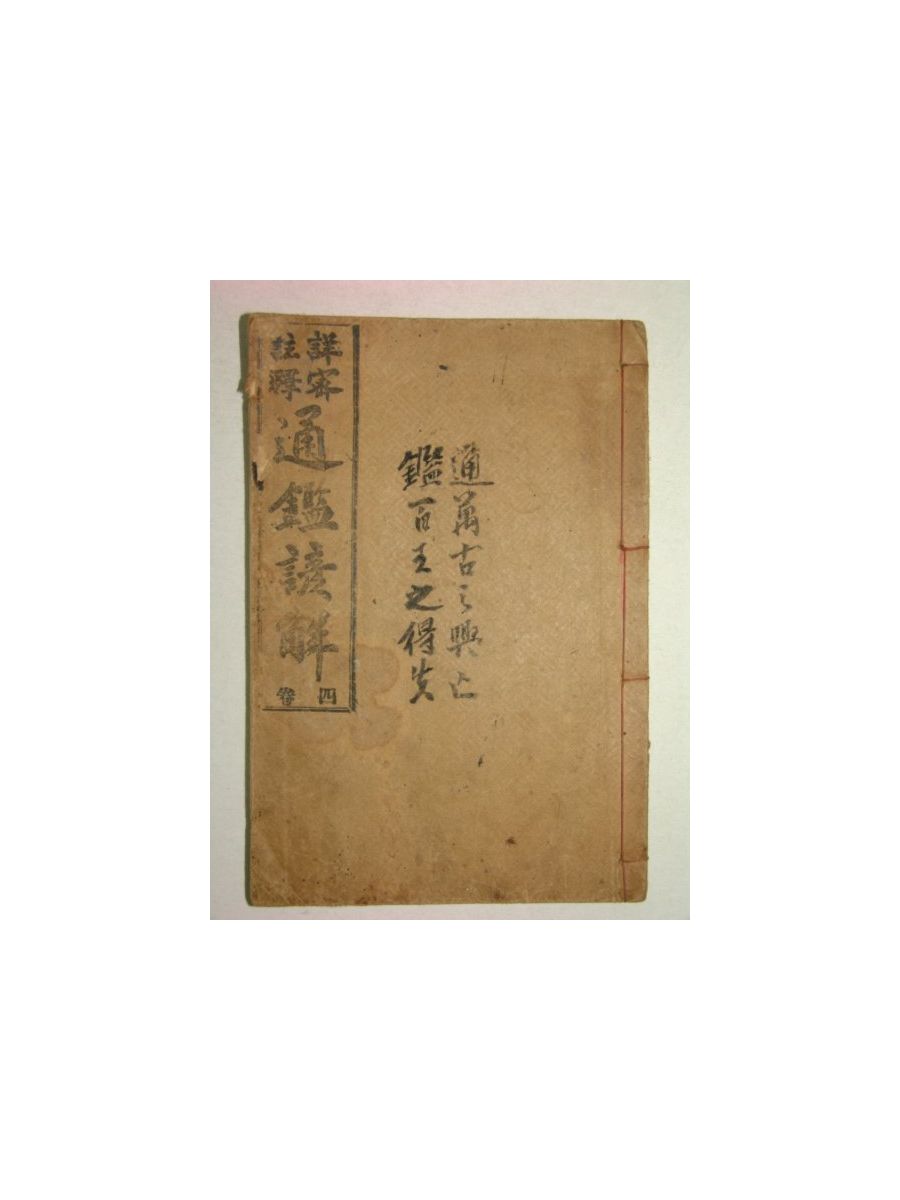 通萬古之興亡
鑑百王之得失
詳密
註釋
通鑑諺解
四卷